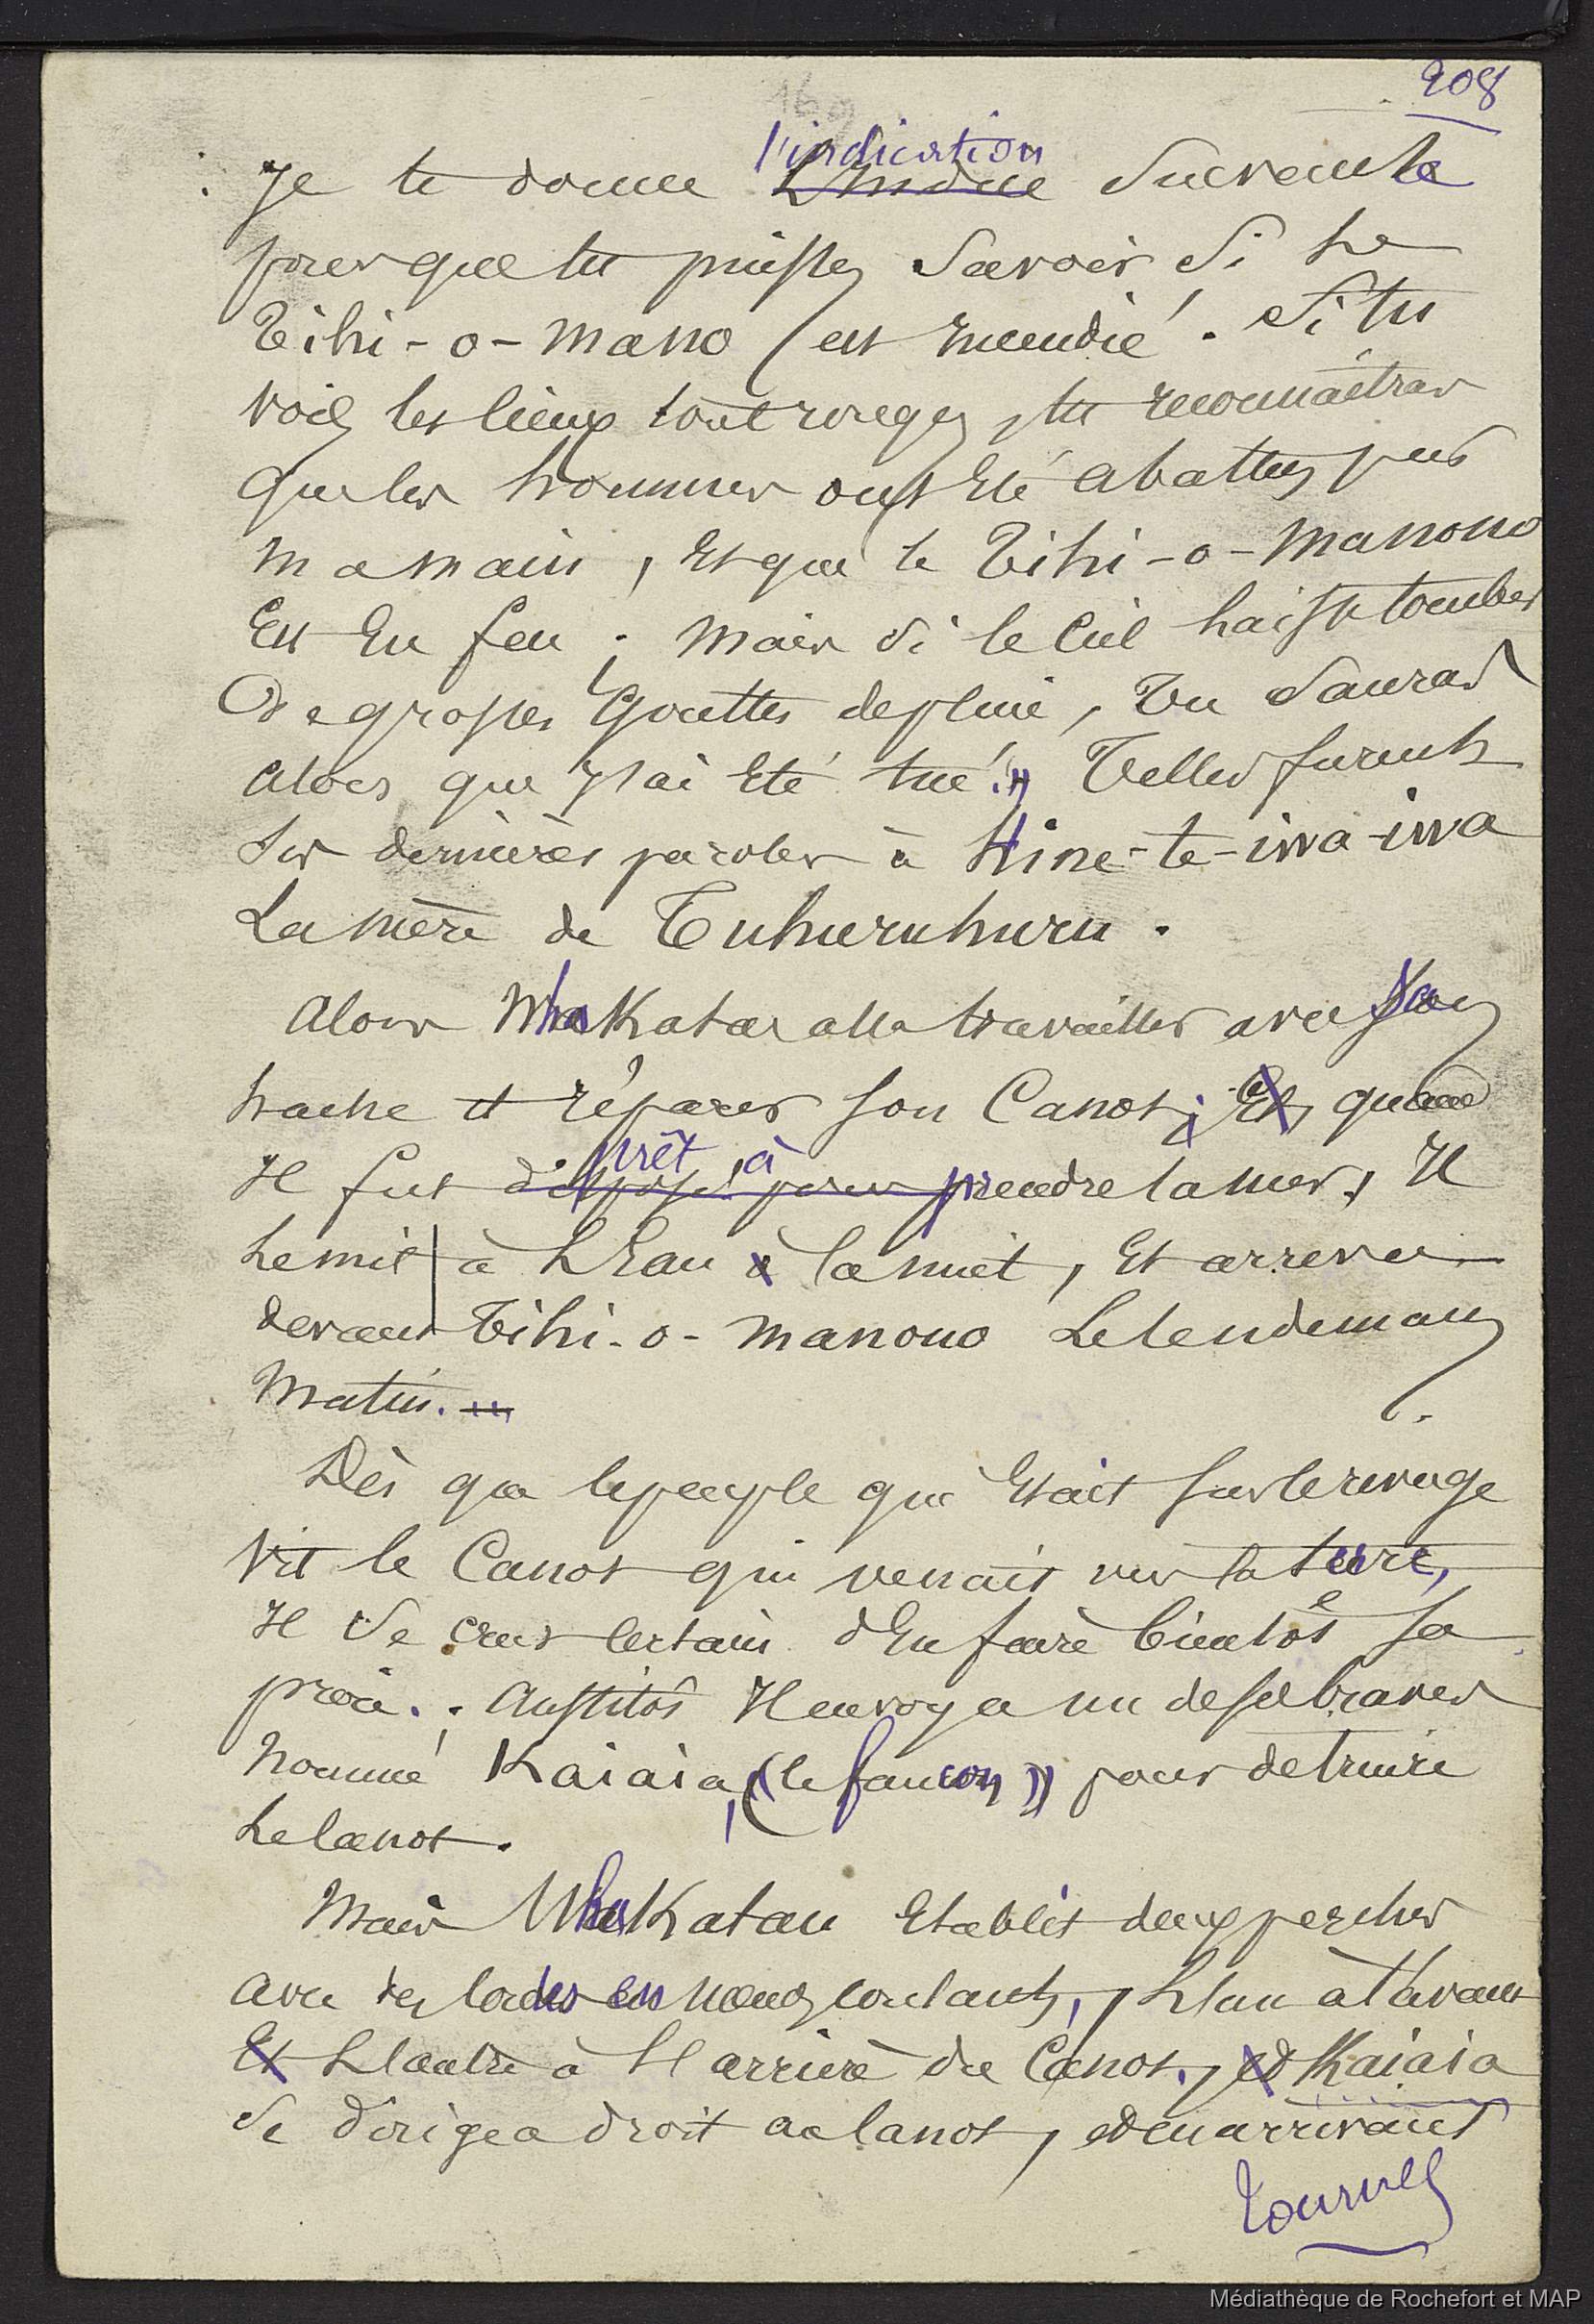 208
169
l'indication
Je te donne L'indice Suivante
pour que tu puisses Savoir Si Le
Tihi-o-mano est Incendié. Si tu
vois les lieux tout rouges, tu reconnaîtras
que les hommes ont Eté abattus par
ma main, Et que le Tihi-o-manono
Est En feu ; mais Si le Ciel laisse tomber
De grosses Gouttes de pluie, Tu Sauras
alors que J'ai Eté tué." Telles furent
Ses dernières paroles à Hine-te-iwa-iwa
La mère de Tuhuruhuru.
alors Whakatau alla travailler avec Sa
hache et réparer Son Canot ; Et quand
prêt à
Il fut disposé pour prendre la mer, Il
Le mit à L'Eau à la nuit, Et arriva
devant Tihi-o-manono Le lendemain
Matin.
Dès que le peuple qui Etait Sur le rivage
Vit le Canot qui venait vers la terre,
Il Se crut Certain d'En faire bientôt Sa
proie. Aussitôt Il envoya un de ses braves
nommé Kaiaia, (le faucon) pour détruire
Le Canot.
Mais Whakatau Etablit deux perches
avec des Cordes en nœuds coulants, L'un à l'avant
Et L'autre à l'arrière du Canot, et Kaiaia
Se dirigea droit au Canot, et en arrivant
Tournez
Médiathèque de Rochefort et MAP